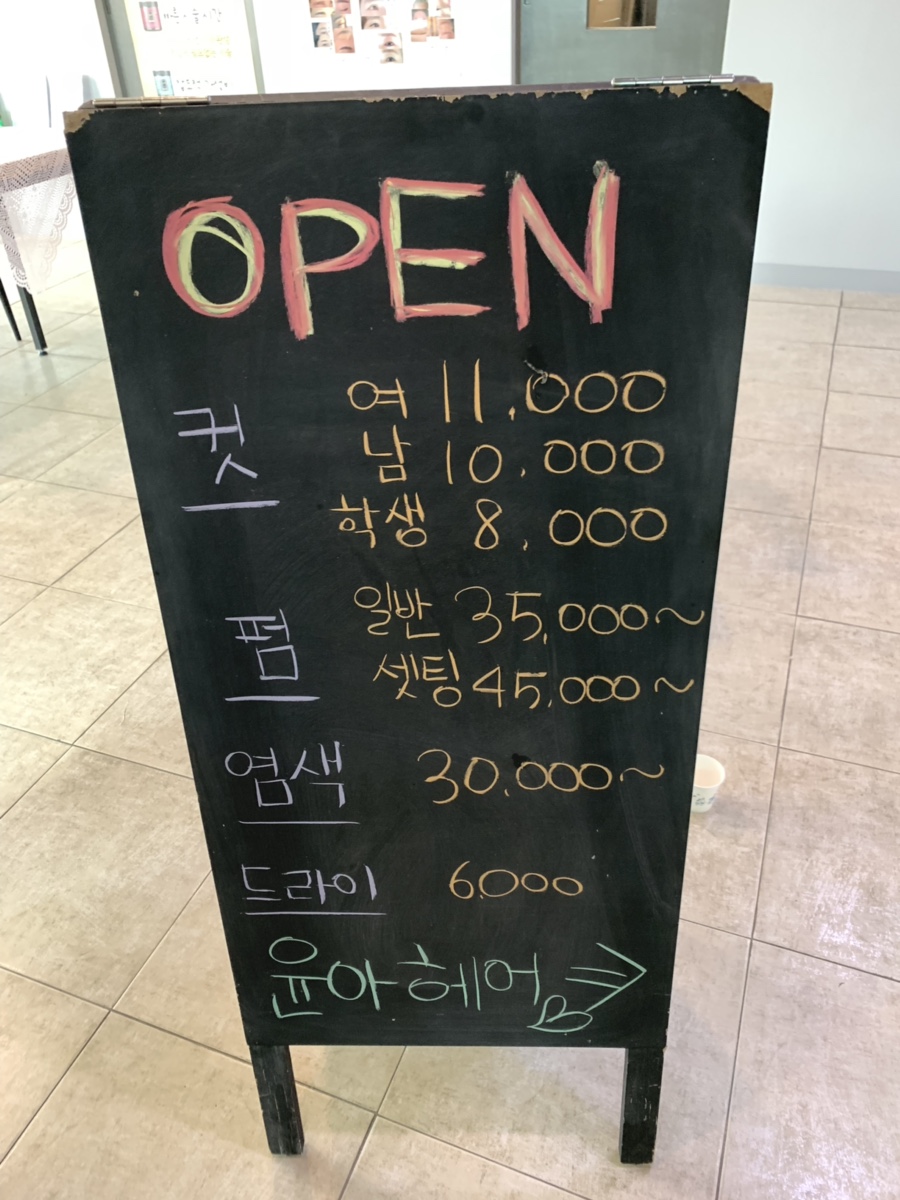 OPEN
컷
여 11,000
남 10,000
학생 8,000
펌
일반 35,000~
셋팅 45,000~
염색 30,000~
드라이 6,000
윤아헤어